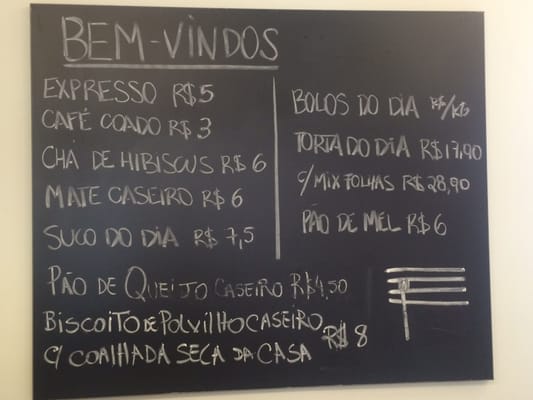 BEM-VINDOS
EXPRESSO R$5
CAFÉ COADO R$3
CHÁ DE HIBISCUS R$6
MATE CASEIRO R$6
SUCO DO DIA R$7,5
BOLOS DO DIA
TORTA DO DIA R$17,90
C/MIX FOLHAS R$28,90
PÃO DE MEL R$6
PÃO DE QUEIJO CASEIRO R$4,50
BISCOITO DE POLVILHO CASEIRO
C/ COALHADA SECA DA CASA R$8